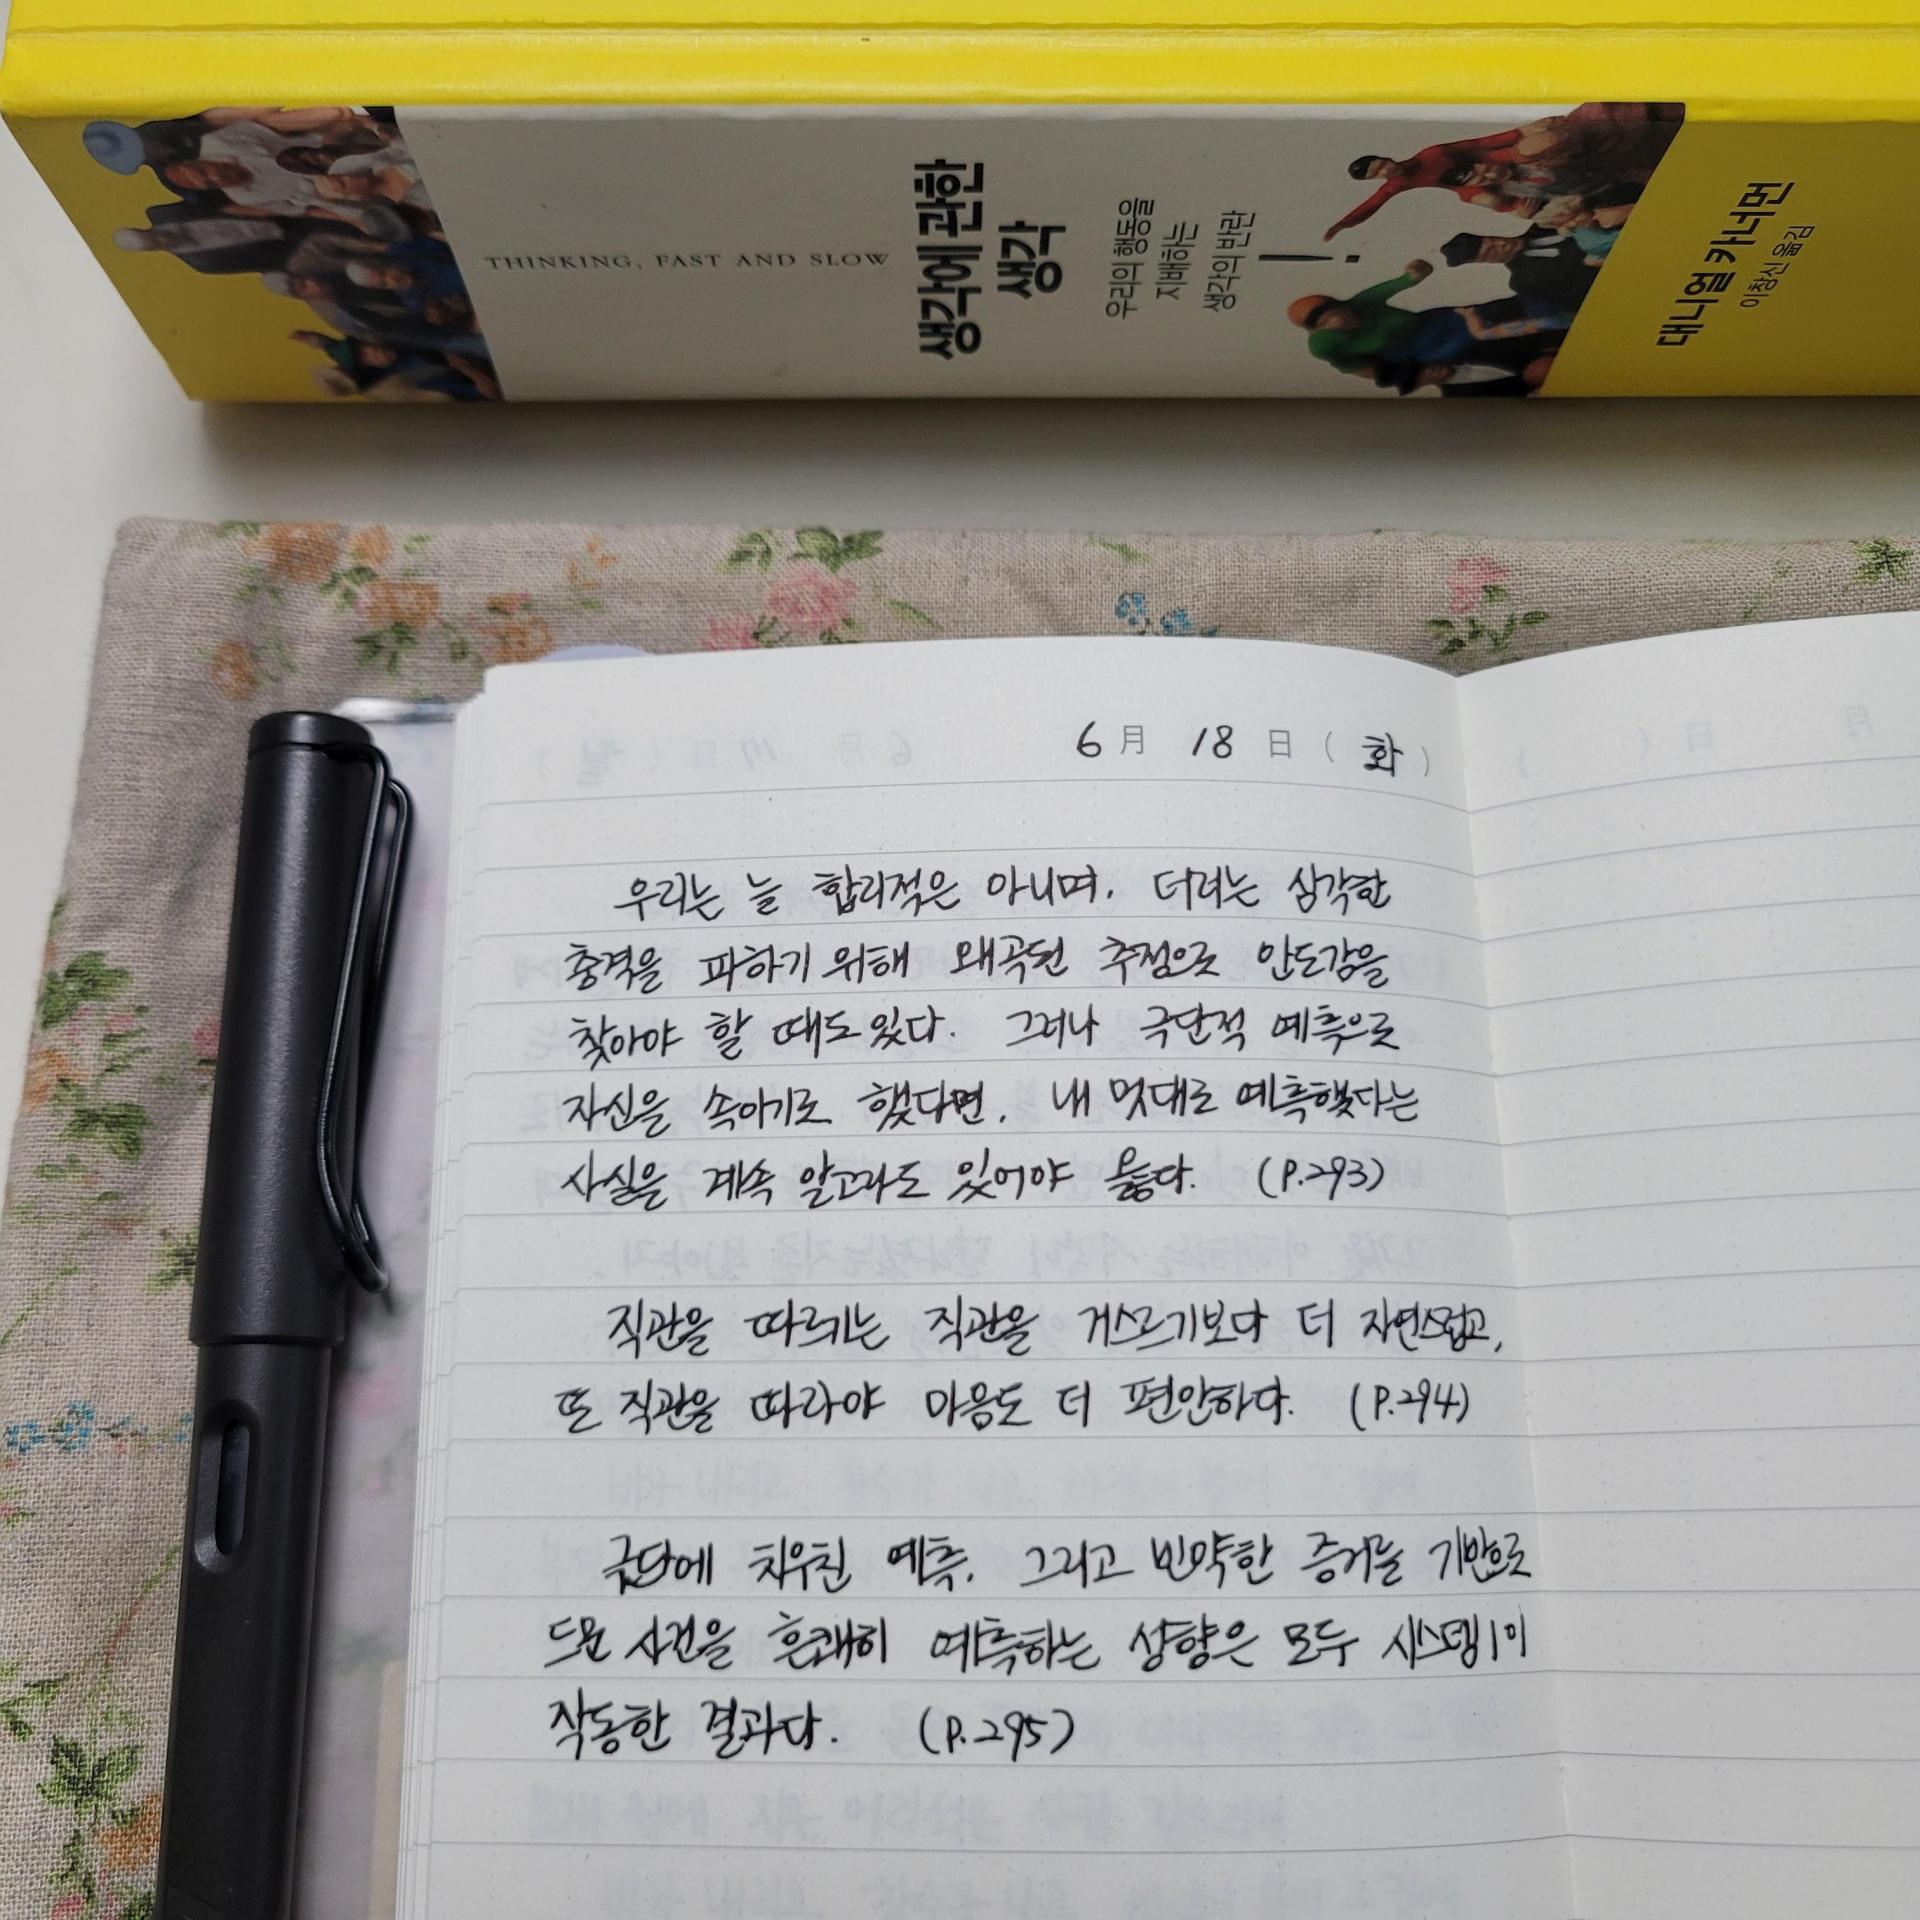 THINKING, FAST AND SLOW
생각에 관한
생각
우리의 행동을
지배하는
생각의 반란
!
대니얼 카너먼
이창신 옮김
6月 18日 (화)
우리는 늘 합리적은 아니며, 더러는 심각한
충격을 피하기 위해 왜곡된 추정으로 안도감을
찾아야 할 때도 있다. 그러나 극단적 예측으로
자신을 속이기로 했다면, 내 멋대로 예측했다는
사실을 계속 알고라도 있어야 옳다. (P.293)
직관을 따르기는 직관을 거스르기보다 더 자연스럽고,
또 직관을 따라야 마음도 더 편안하다. (P.294)
극단에 치우친 예측, 그리고 빈약한 증거를 기반으로
드문 사건을 흔쾌히 예측하는 성향은 모두 시스템1이
작동한 결과다. (P.295)
6月 17日 (월)
月 日 ( )